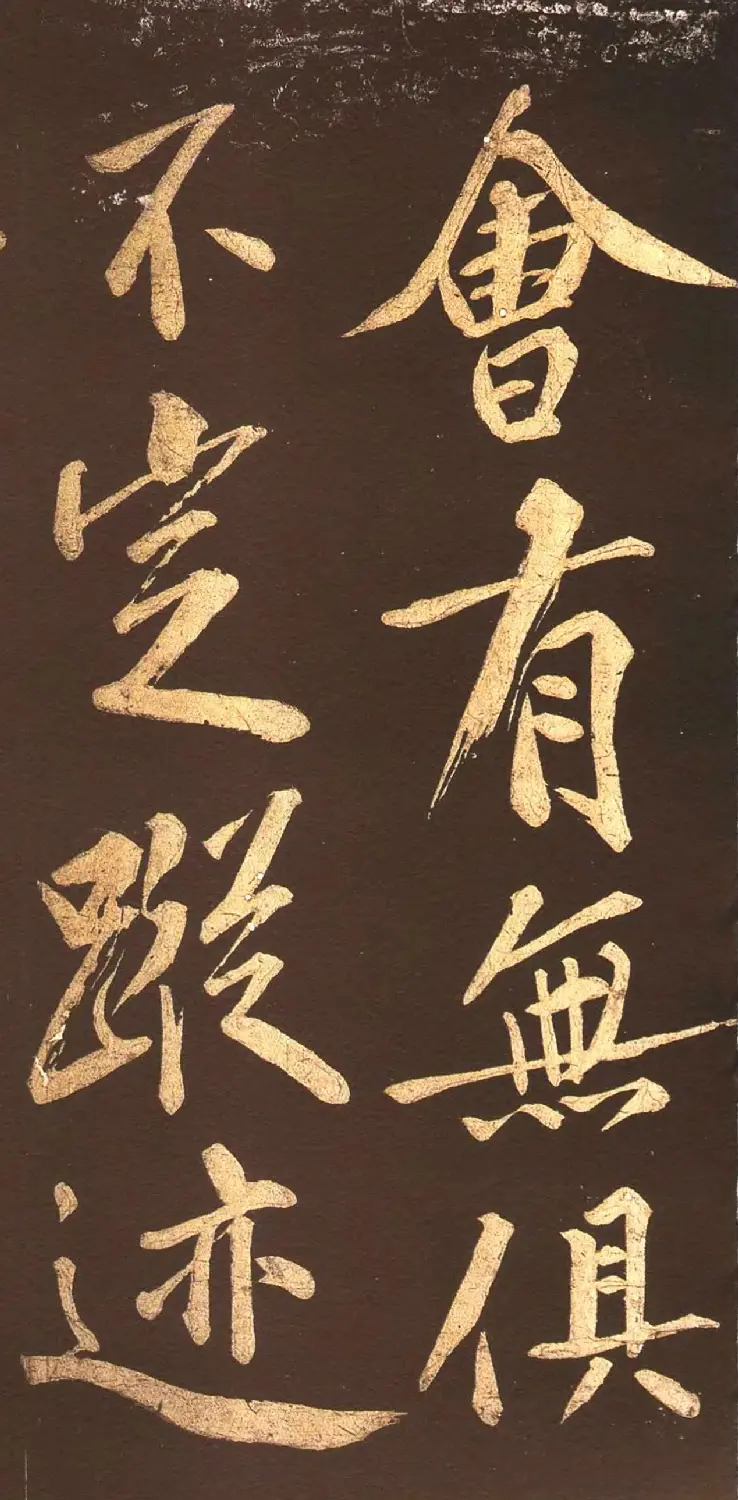 會有無俱
不定蹤迹